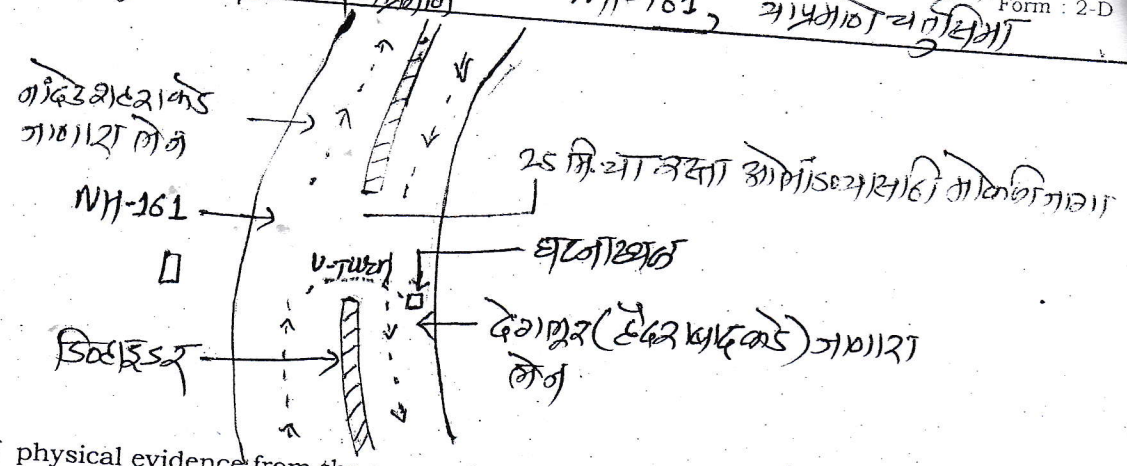 Form : 2-D
NH-161, याप्रमाणे चतुसिमा
नांदेड शहराकडे
जाणारा लेन
25 मि. चा रस्ता ओलांडण्यासाठी मोकळी जागा
NH-161
U-Turn
घटनास्थळ
डिव्हाइडर
देगलूर (हैदराबादकडे) जाणारा
लेन
physical evidence from